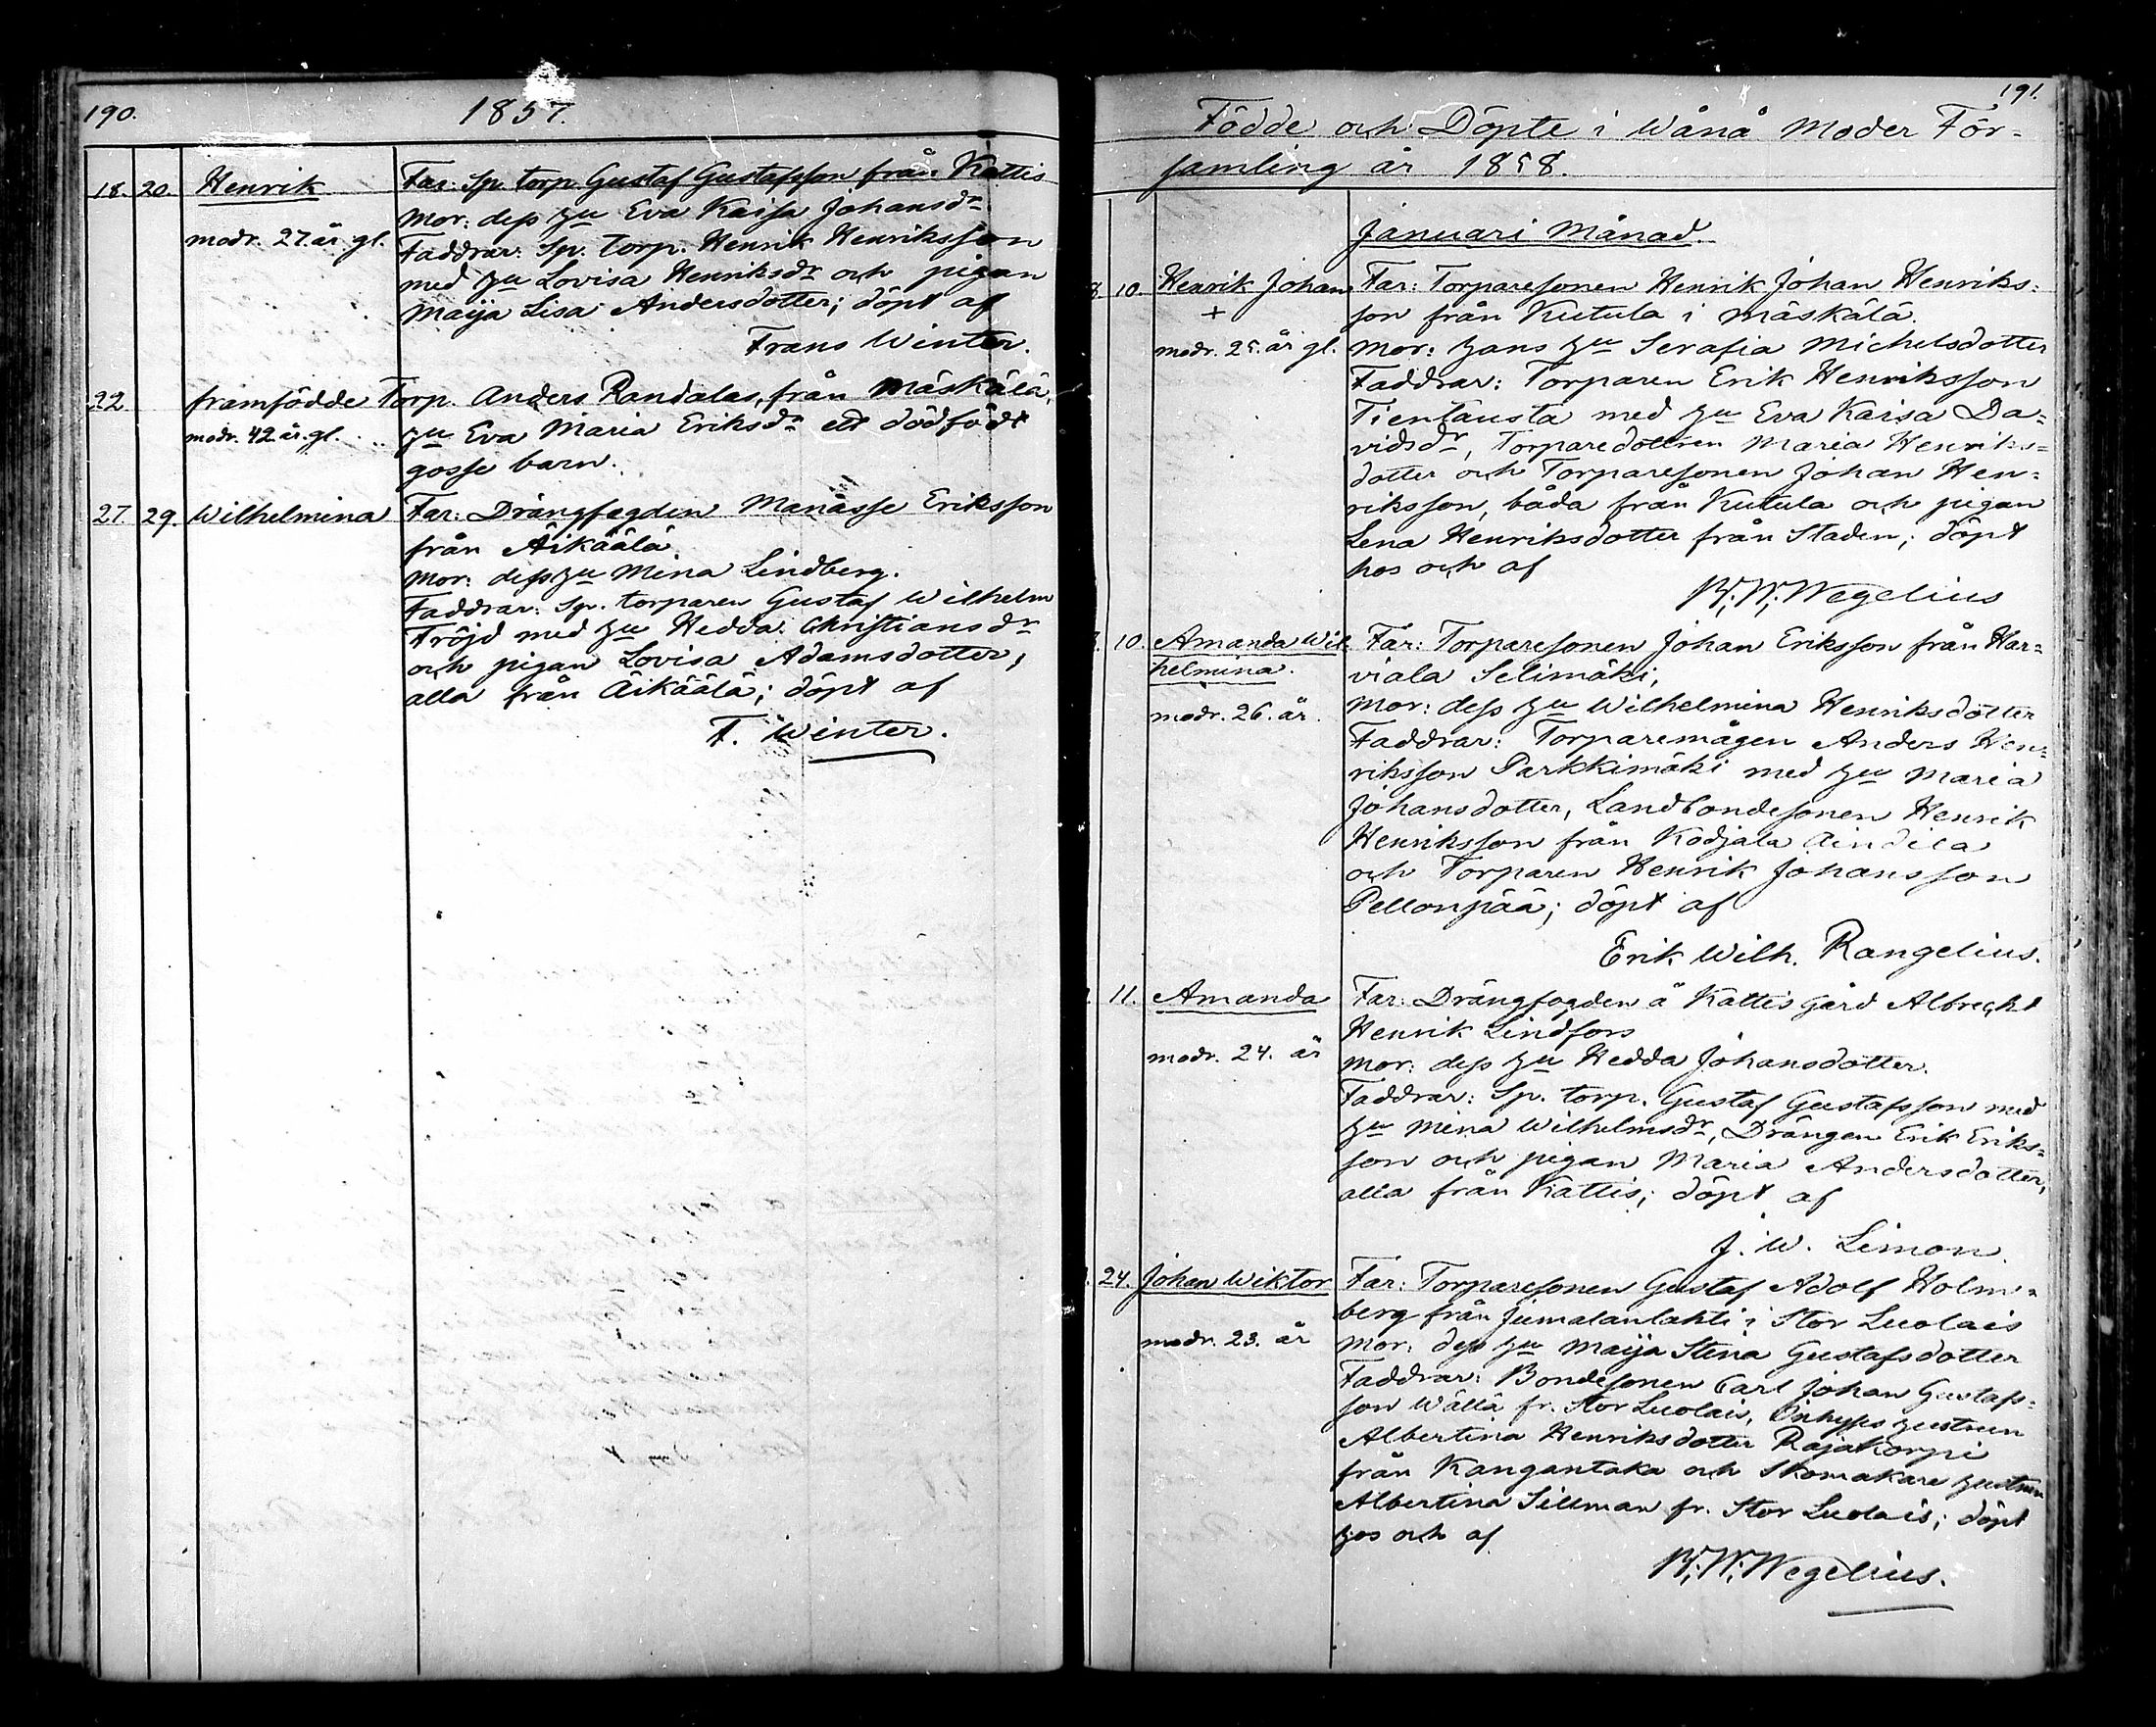 190.
1857.
18. 20. Henrik
modr. 27 år gl.
Far: Sp. torp. Gustaf Gustafsson från Kattis
Mor: dess hu Eva Kaisa Johansdr
Faddrar: Sp. torp. Henrik Henriksson
med hu Lovisa Henriksdr och pigan
Maija Lisa Andersdotter; döpt af
Frans Winter.
22. framfödde Torp. Anders Randalas, från Mäskälä,
modr. 42 år gl.
hu Eva Maria Eriksdr ett dödfödt
gosse barn.
27. 29. Wilhelmina
Far: Drängfogden Manasse Eriksson
från Äikäälä.
Mor: dess hu Mina Lindberg.
Faddrar: Sp. torparen Gustaf Wilhelm
Fröjd med hu Hedda Christiansdr
och pigan Lovisa Adamsdotter,
alla från Äikäälä; döpt af
F. Winter.
191.
Födde och Döpte i Wånå Moder För-
samling år 1858.
Januari Månad.
8. 10. Henrik Johan
+
modr. 25. år gl.
Far: Torparesonen Henrik Johan Henriks-
son från Kutula i Mäskälä.
Mor: hans hu Serafia Michelsdotter
Faddrar: Torparen Erik Henriksson
Tientausta med hu Eva Kaisa Da-
vidsdr, Torparedottren Maria Henriks-
dotter och Torparesonen Johan Hen-
riksson, båda från Kutula och pigan
Lena Henriksdotter från Staden; döpt
hos och af
B. W. Wegelius
10. Amanda Wil
helmina.
modr. 26. år.
Far: Torparesonen Johan Eriksson från Har-
viala Selimäki,
Mor: dess hu Wilhelmina Henriksdotter
Faddrar: Torparemågen Anders Hen-
riksson Parkkimäki med hu Maria
Johansdotter, Landbondesonen Henrik
Henriksson från Kodjala Aindila
och Torparen Henrik Johansson
Pellonpää; döpt af
Erik Wilh. Rangelius.
11. Amanda
modr. 24. år
Far: Drängfogden å Kattis gård Albrecht
Henrik Lindfors
Mor: dess hu Hedda Johansdotter.
Faddrar: Sp. torp. Gustaf Gustafsson med
hu Mina Wilhelmsdr, Drängen Erik Eriks-
son och pigan Maria Andersdotter,
alla från Kattis; döpt af
J. W. Limon.
24. Johan Wiktor
modr. 23. år
Far: Torparesonen Gustaf Adolf Holm-
berg från Jumalanlahti i Stor Luolais
Mor: dess hu Maija Stina Gustafsdotter
Faddrar: Bondesonen Carl Johan Gustafs-
son Wällä fr. Stor Luolais, Inhyses hustrun
Albertina Henriksdotter Rajakorpi
från Kangantaka och Skomakare hustrun
Albertina Sillman fr. Stor Luolais; döpt
hos och af
B. W. Wegelius.